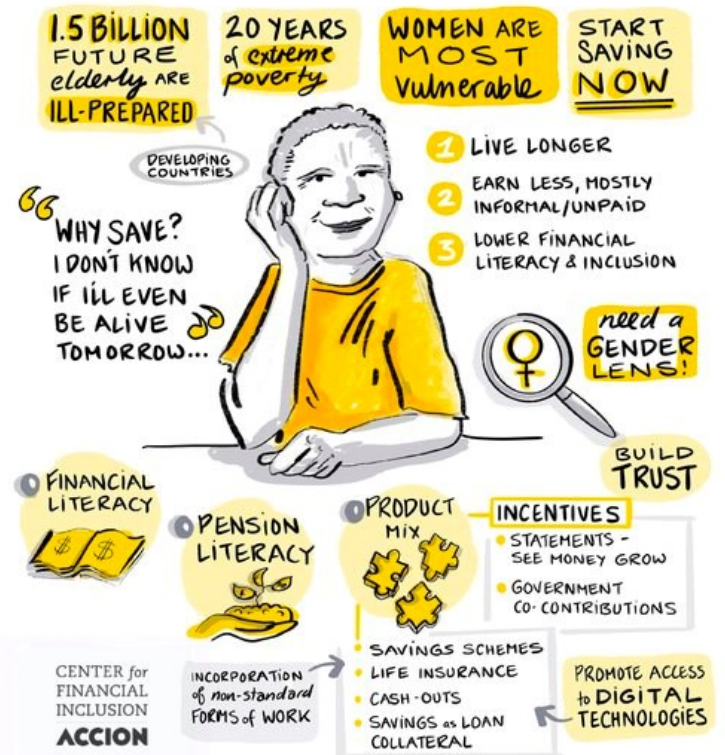 1.5 BILLION
FUTURE
elderly ARE
ILL-PREPARED
20 YEARS
of extreme
poverty
WOMEN ARE
MOST
Vulnerable
START
SAVING
NOW
DEVELOPING
COUNTRIES
1 LIVE LONGER
2 EARN LESS, MOSTLY
INFORMAL/UNPAID
3 LOWER FINANCIAL
LITERACY & INCLUSION
“WHY SAVE?
I DON'T KNOW
IF I'LL EVEN
BE ALIVE
TOMORROW...”
need a
GENDER
LENS!
BUILD
TRUST
FINANCIAL
LITERACY
$ $
PENSION
LITERACY
PRODUCT
MIX
INCENTIVES
• STATEMENTS -
SEE MONEY GROW
• GOVERNMENT
CO-CONTRIBUTIONS
• SAVINGS SCHEMES
• LIFE INSURANCE
• CASH-OUTS
• SAVINGS as LOAN
COLLATERAL
INCORPORATION
of non-standard
FORMS of WORK
PROMOTE ACCESS
to DIGITAL
TECHNOLOGIES
CENTER for
FINANCIAL
INCLUSION
ACCION